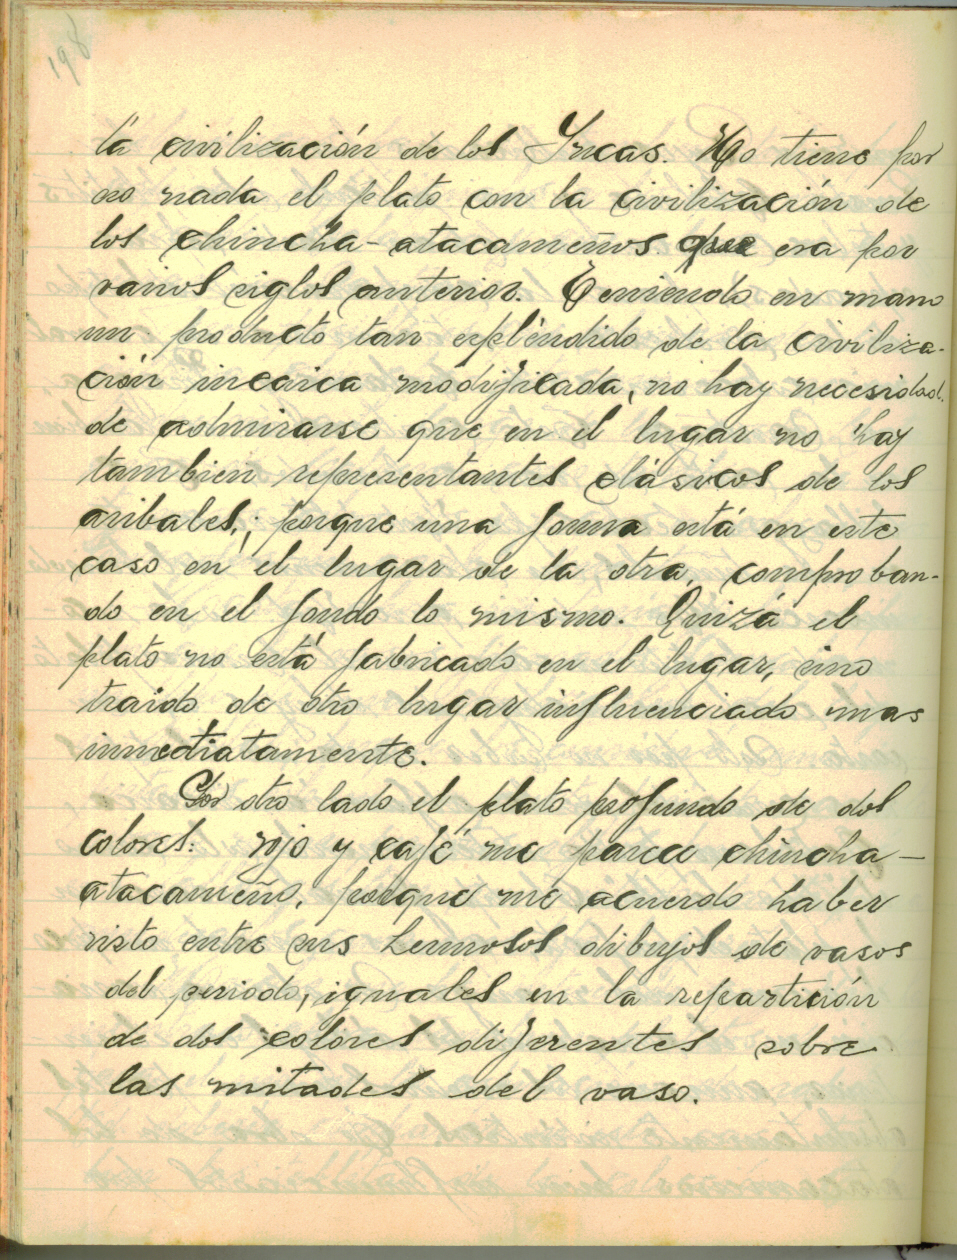 198
la civilización de los Incas. No tiene por
no nada el plato con la civilización de
los chincha-atacameños que era por
varios siglos anterior. Teniendo en mano
un producto tan espléndido de la civiliza-
ción incaica modificada, no hay necesidad
de admirarse que en el lugar no hay
tambien representantes clásicos de los
aribales; porque una forma está en este
caso en el lugar de la otra, comproban-
do en el fondo lo mismo. Quizá el
plato no está fabricado en el lugar, sino
traido de otro lugar influenciado mas
inmediatamente.
Por otro lado el plato profundo de dos
colores: rojo y café me parece chincha-
atacameño, porque me acuerdo haber
visto entre sus hermosos dibujos de vasos
del periodo, iguales en la repartición
de dos colores diferentes sobre
las mitades del vaso.